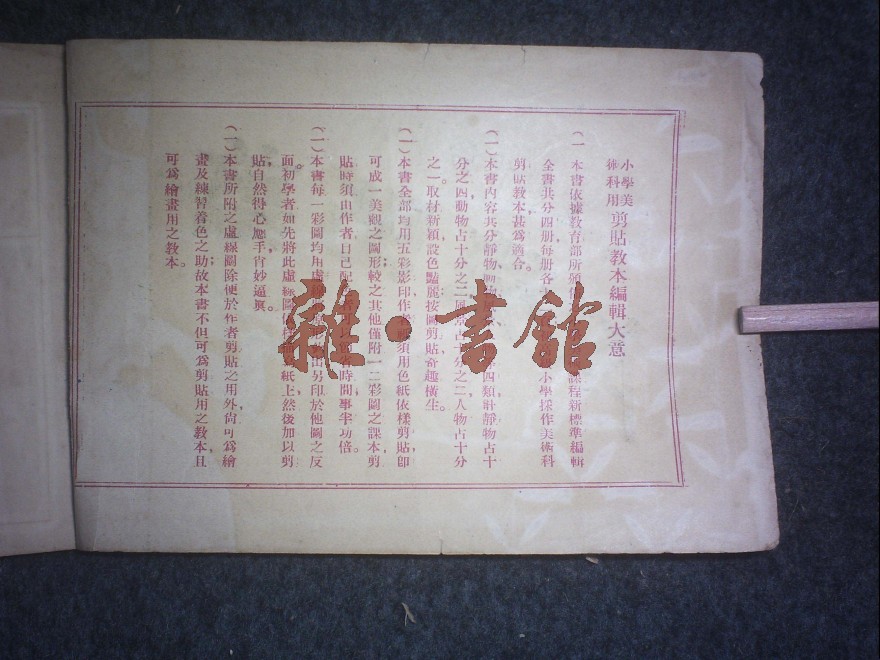 小學美術科用 剪貼教本編輯大意
(一 本書依據教育部所頒 課程新標準編輯
全書共分四册每册各 小學採作美術科
剪貼教本甚爲適合。
(一)本書内容共分靜物、動物 四類計靜物占十
分之四動物占十分之二風景占十分之二人物占十分
之二。取材新穎設色豔麗按圖剪貼奇趣橫生。
(一)本書全部均用五彩影印作者 須用色紙依樣剪貼卽
可成一美觀之圖形較之其他僅附一二彩圖之課本剪
貼時須由作者自己配 時間事半功倍。
(一)本書每一彩圖均用虛線 出另印於他圖之反
面初學者如先將此虛線圖 紙上然後加以剪
貼,自然得心應手,肖妙逼眞。
(一)本書所附之虛線圖除便於作者剪貼之用外尙可爲繪
畫及練習着色之助故本書不但可爲剪貼用之教本且
可爲繪畫用之教本。
雜·書舘